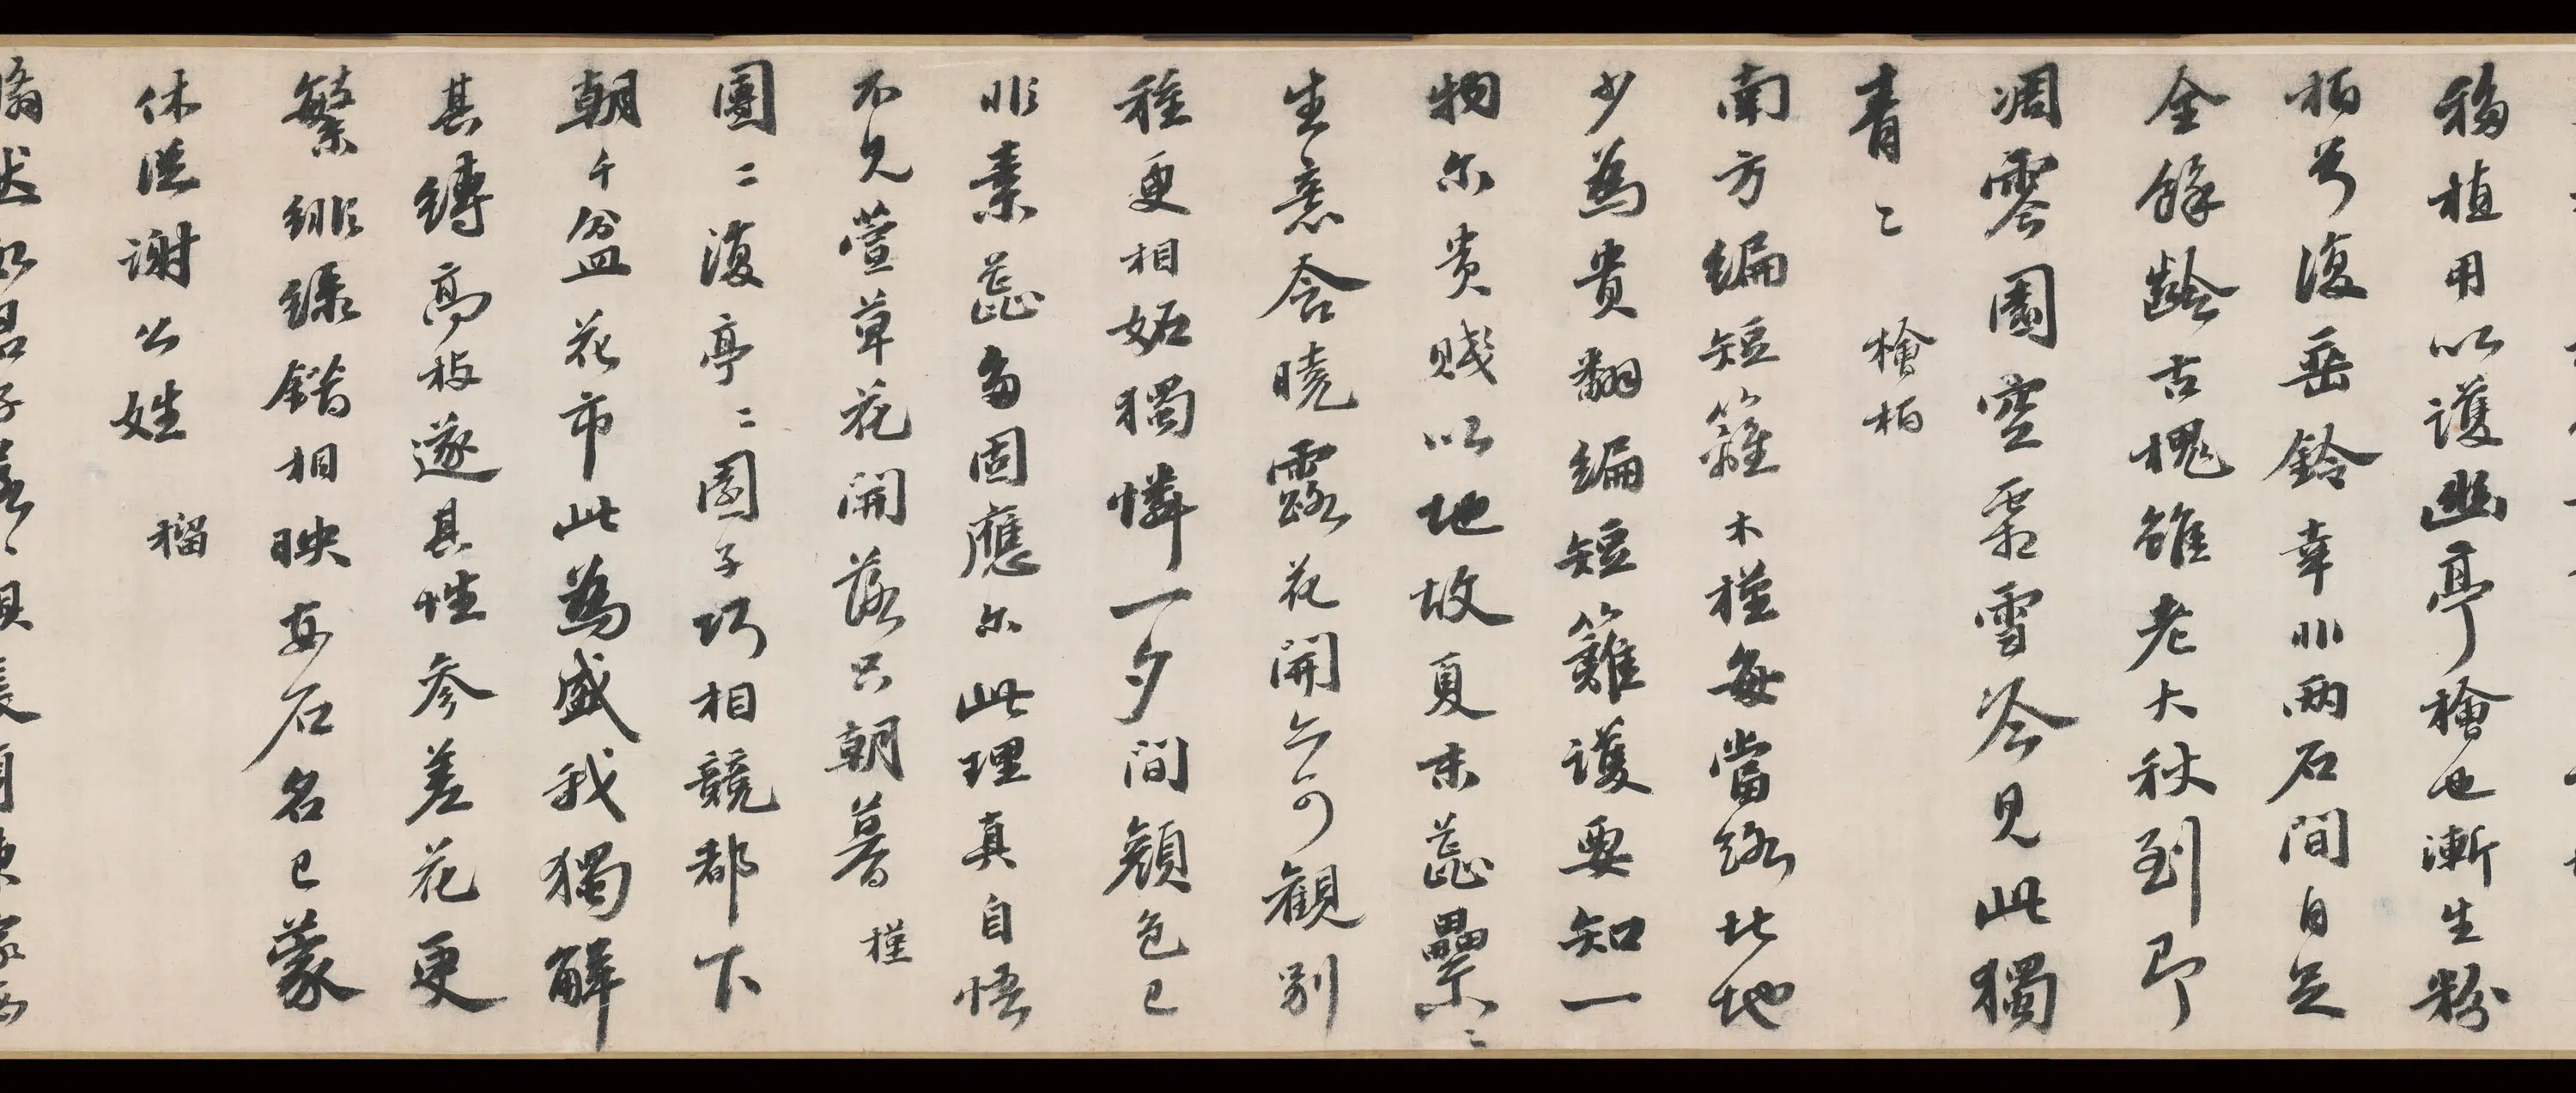 移植用以護幽亭檜也漸生粉
柏兮復垂鈴幸非兩石間自足
全餘齡古槐雖老大秋到即
凋零園空霜雪冷見此獨
青〻 檜柏
南方編短籬木槿每當路北地
少為貴翻編短籬護要知一
物尔貴賤以地故夏末蕊纍〻
生意含曉露花開亦可觀別
種更相妬獨憐一夕間顏色已
非素蕊多固應尔此理真自悟
不見萱草花開落只朝暮 槿
團〻復亭〻園子巧相競都下
朝千盆花市此為盛我獨解
其縛高枝遂其性參差花更
繁緋綠錯相映安石名已蒙
休從謝公姓 榴